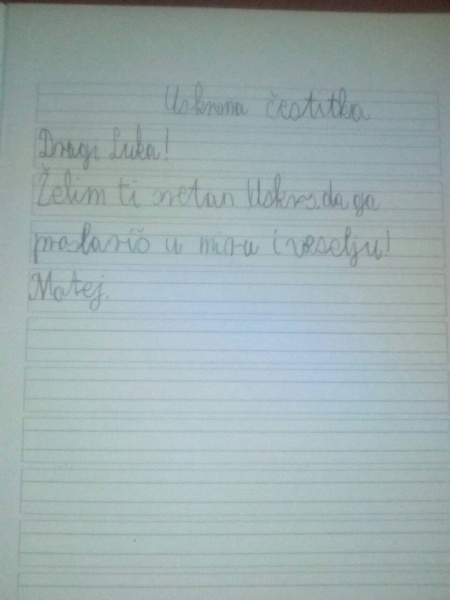 Uskrsna čestitka
Dragi Luka!
Želim ti sretan Uskrs, da ga
proslaviš u miru i veselju!
Matej.